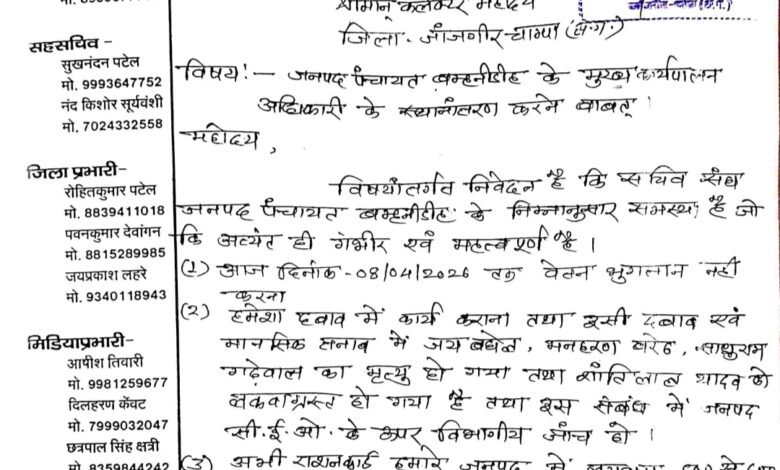 सहसचिव -
सुखनंदन पटेल
मो. 9993647752
नंद किशोर सूर्यवंशी
मो. 7024332558
जिला प्रभारी-
रोहितकुमार पटेल
मो. 8839411018
पवनकुमार देवांगन
मो. 8815289985
जयप्रकाश लहरे
मो. 9340118943
मिडियाप्रभारी-
आपीश तिवारी
मो. 9981259677
दिलहरण केंवट
मो. 7999032047
छत्रपाल सिंह क्षत्री
मो. 8359844242
श्रीमान् कलेक्टर महोदय
जिला - जांजगीर-चाम्पा (छ.ग.)
विषय :- जनपद पंचायत बम्हनीडीह के मुख्य कार्यपालन
अधिकारी के स्थानांतरण करने बाबत् ।
महोदय,
विषयांतर्गत निवेदन है कि सचिव संघ
जनपद पंचायत बम्हनीडीह के निम्नानुसार समस्या है जो
कि अत्यंत ही गंभीर एवं महत्वपूर्ण है ।
(1) आज दिनांक - 08/04/2026 तक वेतन भुगतान नही
करना
(2) हमेशा दबाव में कार्य कराना तथा इसी दबाव एवं
मानसिक तनाव में जय बघेल, मनहरण खरे, साधुराम
गढ़ेवाल का मृत्यु हो गया तथा शांतिलाल यादव को
लकवाग्रस्त हो गया है तथा इस संबंध में जनपद
सी.ई.ओ. के ऊपर विभागीय जाँच हो ।
(3) अभी राशनकार्ड हमारे जनपद में